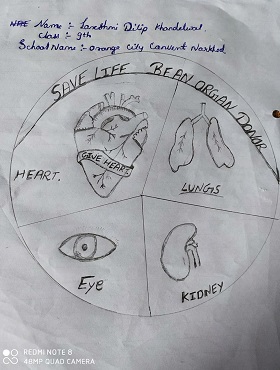 Name :- Dilip Handelwal
class :- 9th
School Name :- orange City Convent Narkhed
SAVE LIFE BE AN ORGAN DONOR
GIVE HEART
HEART
LUNGS
Eye
KIDNEY
REDMI NOTE 8
48MP QUAD CAMERA